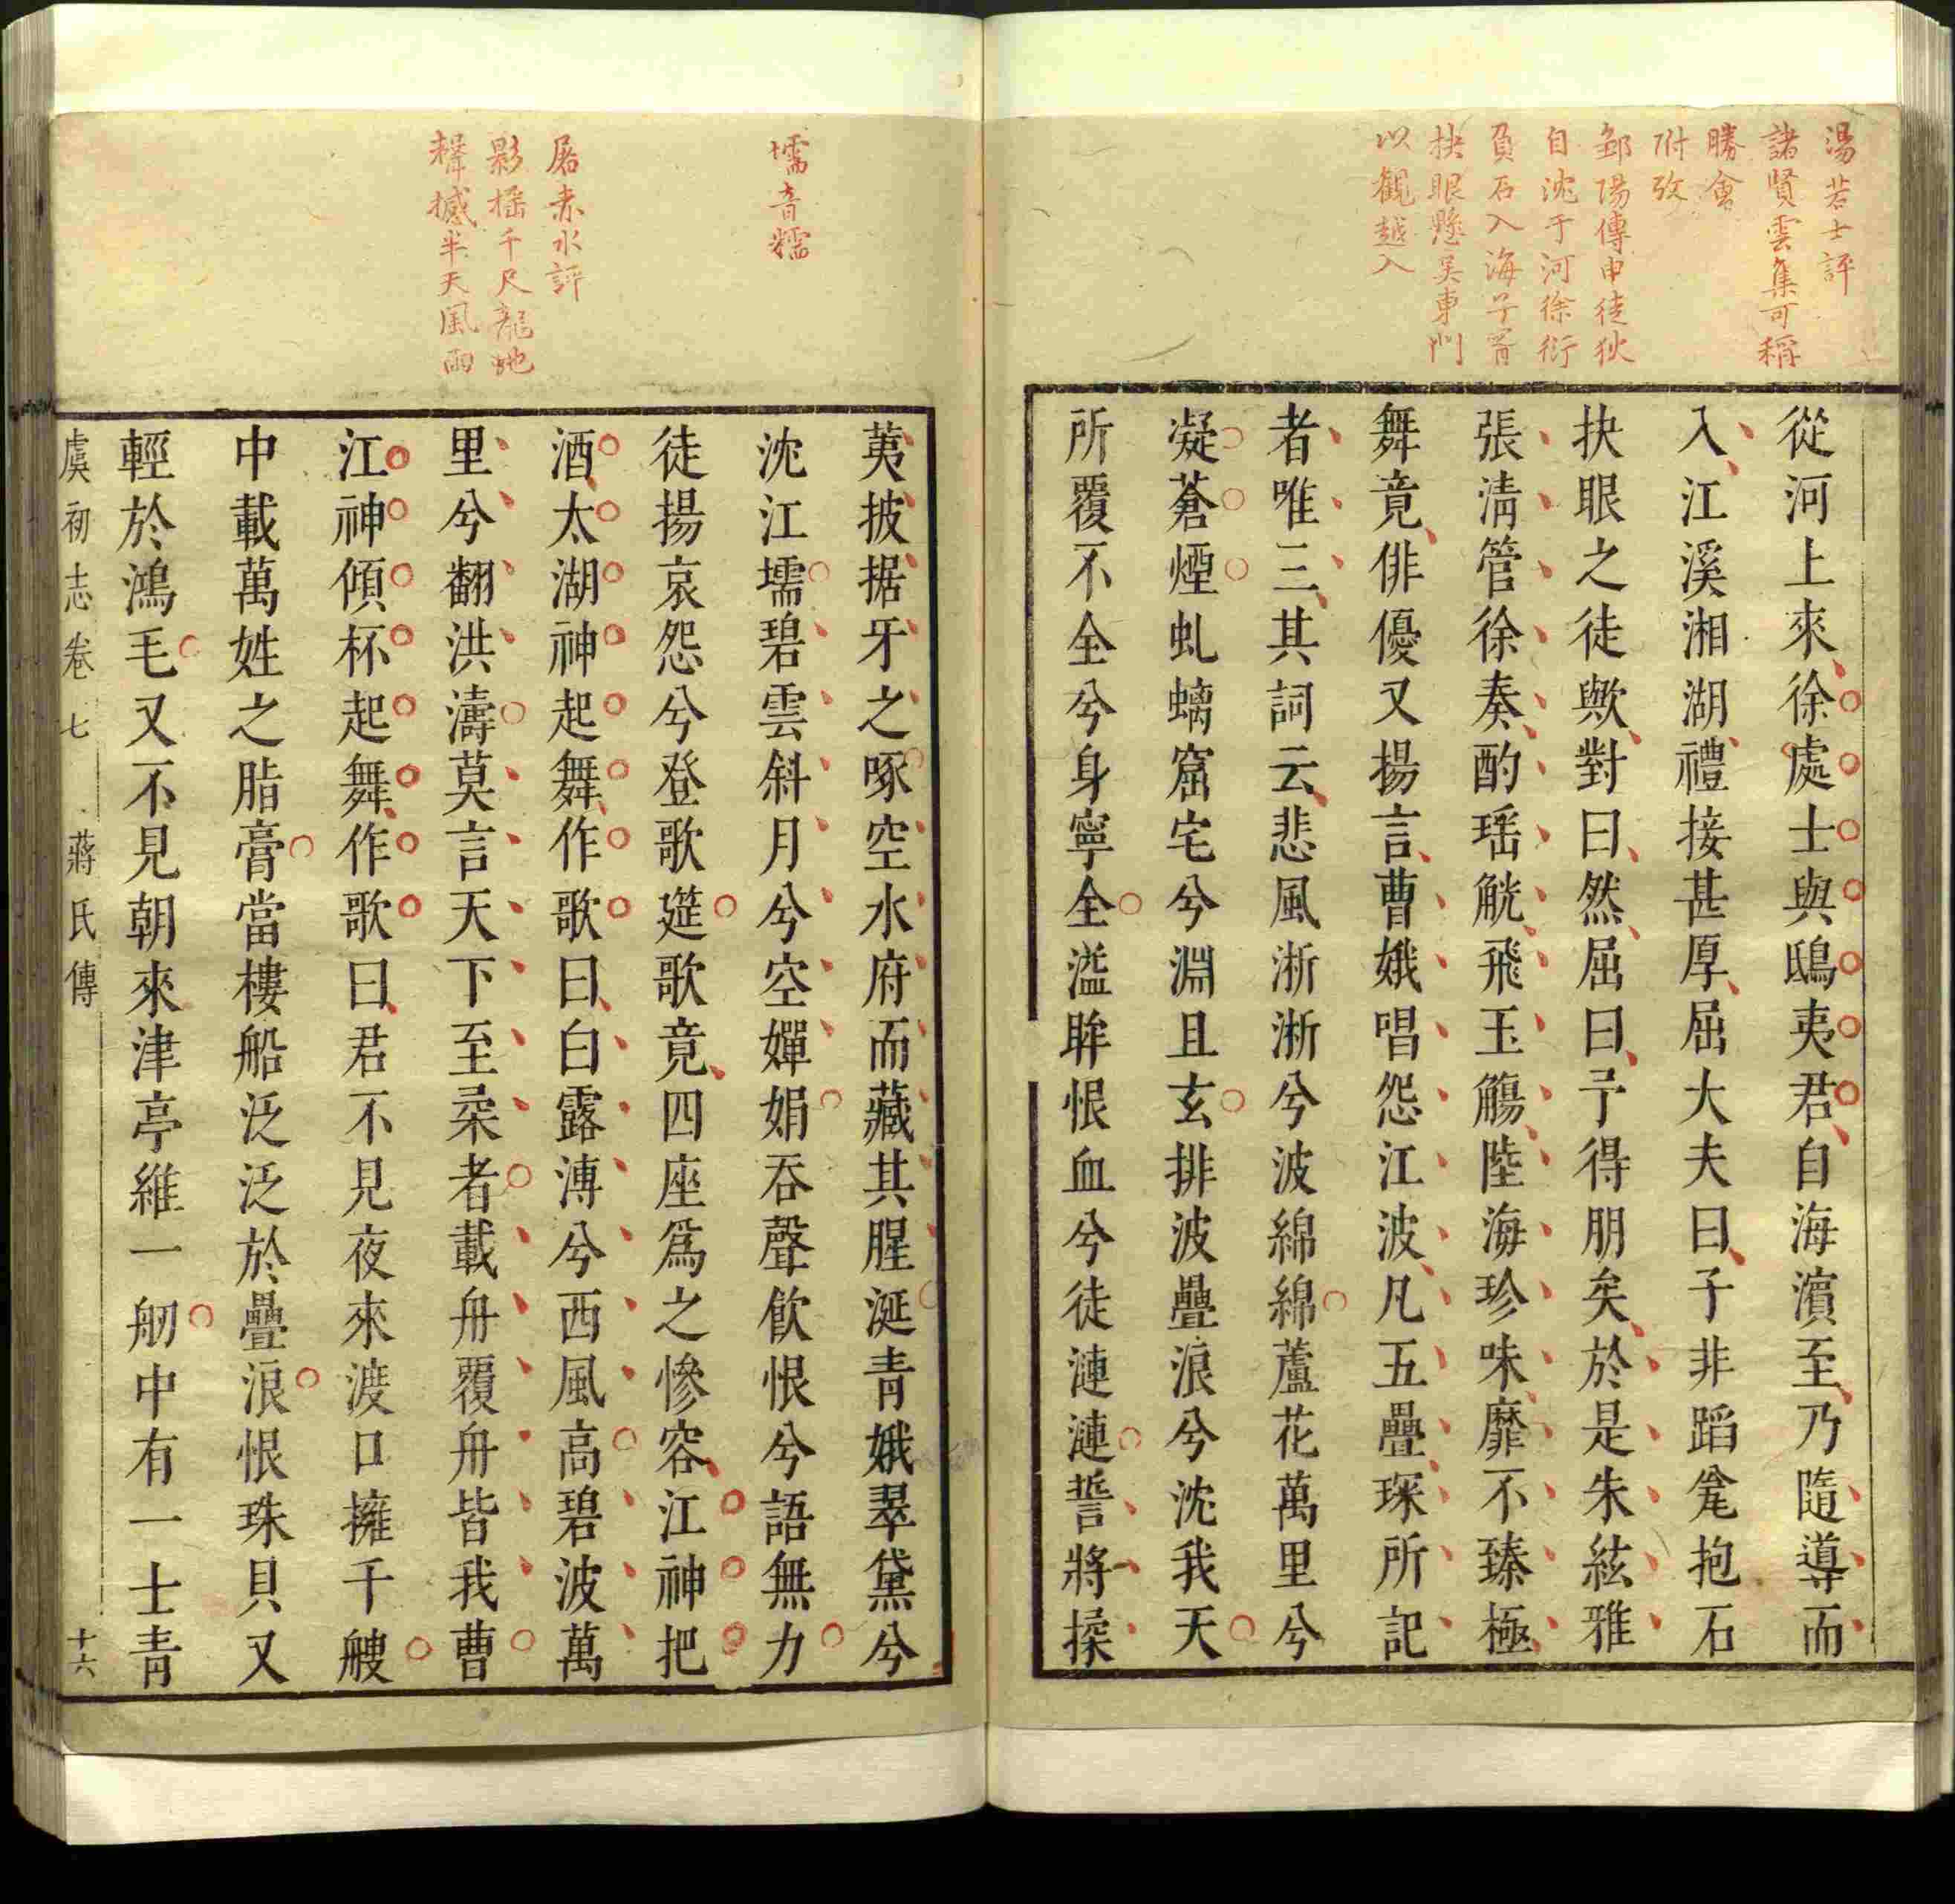 湯若士評
諸賢雲集可稱
勝會
附攷
鄒陽傳申徒狄
自沈于河徐衍
負石入海子胥
抉眼懸吳東門
以觀越入
從河上來徐處士與鴟夷君自海濱至乃隨導而
入江溪湘湖禮接甚厚屈大夫曰子非蹈瓮抱石
抉眼之徒歟對曰然屈曰予得朋矣於是朱絃雅
張清管徐奏酌瑶觥飛玉觴陸海珍味靡不臻極
舞竟俳優又揚言曹娥唱怨江波凡五疊琛所記
者唯三其詞云悲風淅淅兮波綿綿蘆花萬里兮
凝蒼煙虬螭窟宅兮淵且玄排波疊浪兮沈我天
所覆不全兮身寧全溢眸恨血兮徒漣漣誓將揉
荑披据牙之啄空水府而藏其腥涎青娥翠黛兮
沈江壖碧雲斜月兮空嬋娟吞聲飲恨兮語無力
徒揚哀怨兮登歌筵歌竟四座爲之慘容江神把
酒太湖神起舞作歌曰白露漙兮西風高碧波萬
里兮翻洪濤莫言天下至柔者載舟覆舟皆我曹
江神傾杯起舞作歌曰君不見夜來渡口擁千艘
中載萬姓之脂膏當樓船泛泛於疊浪恨珠貝又
輕於鴻毛又不見朝來津亭維一舠中有一士青
壖音糯
屠赤水評
影搖千尺龍虵
聲撼半天風雨
虞初志卷七 蔣氏傳 十六